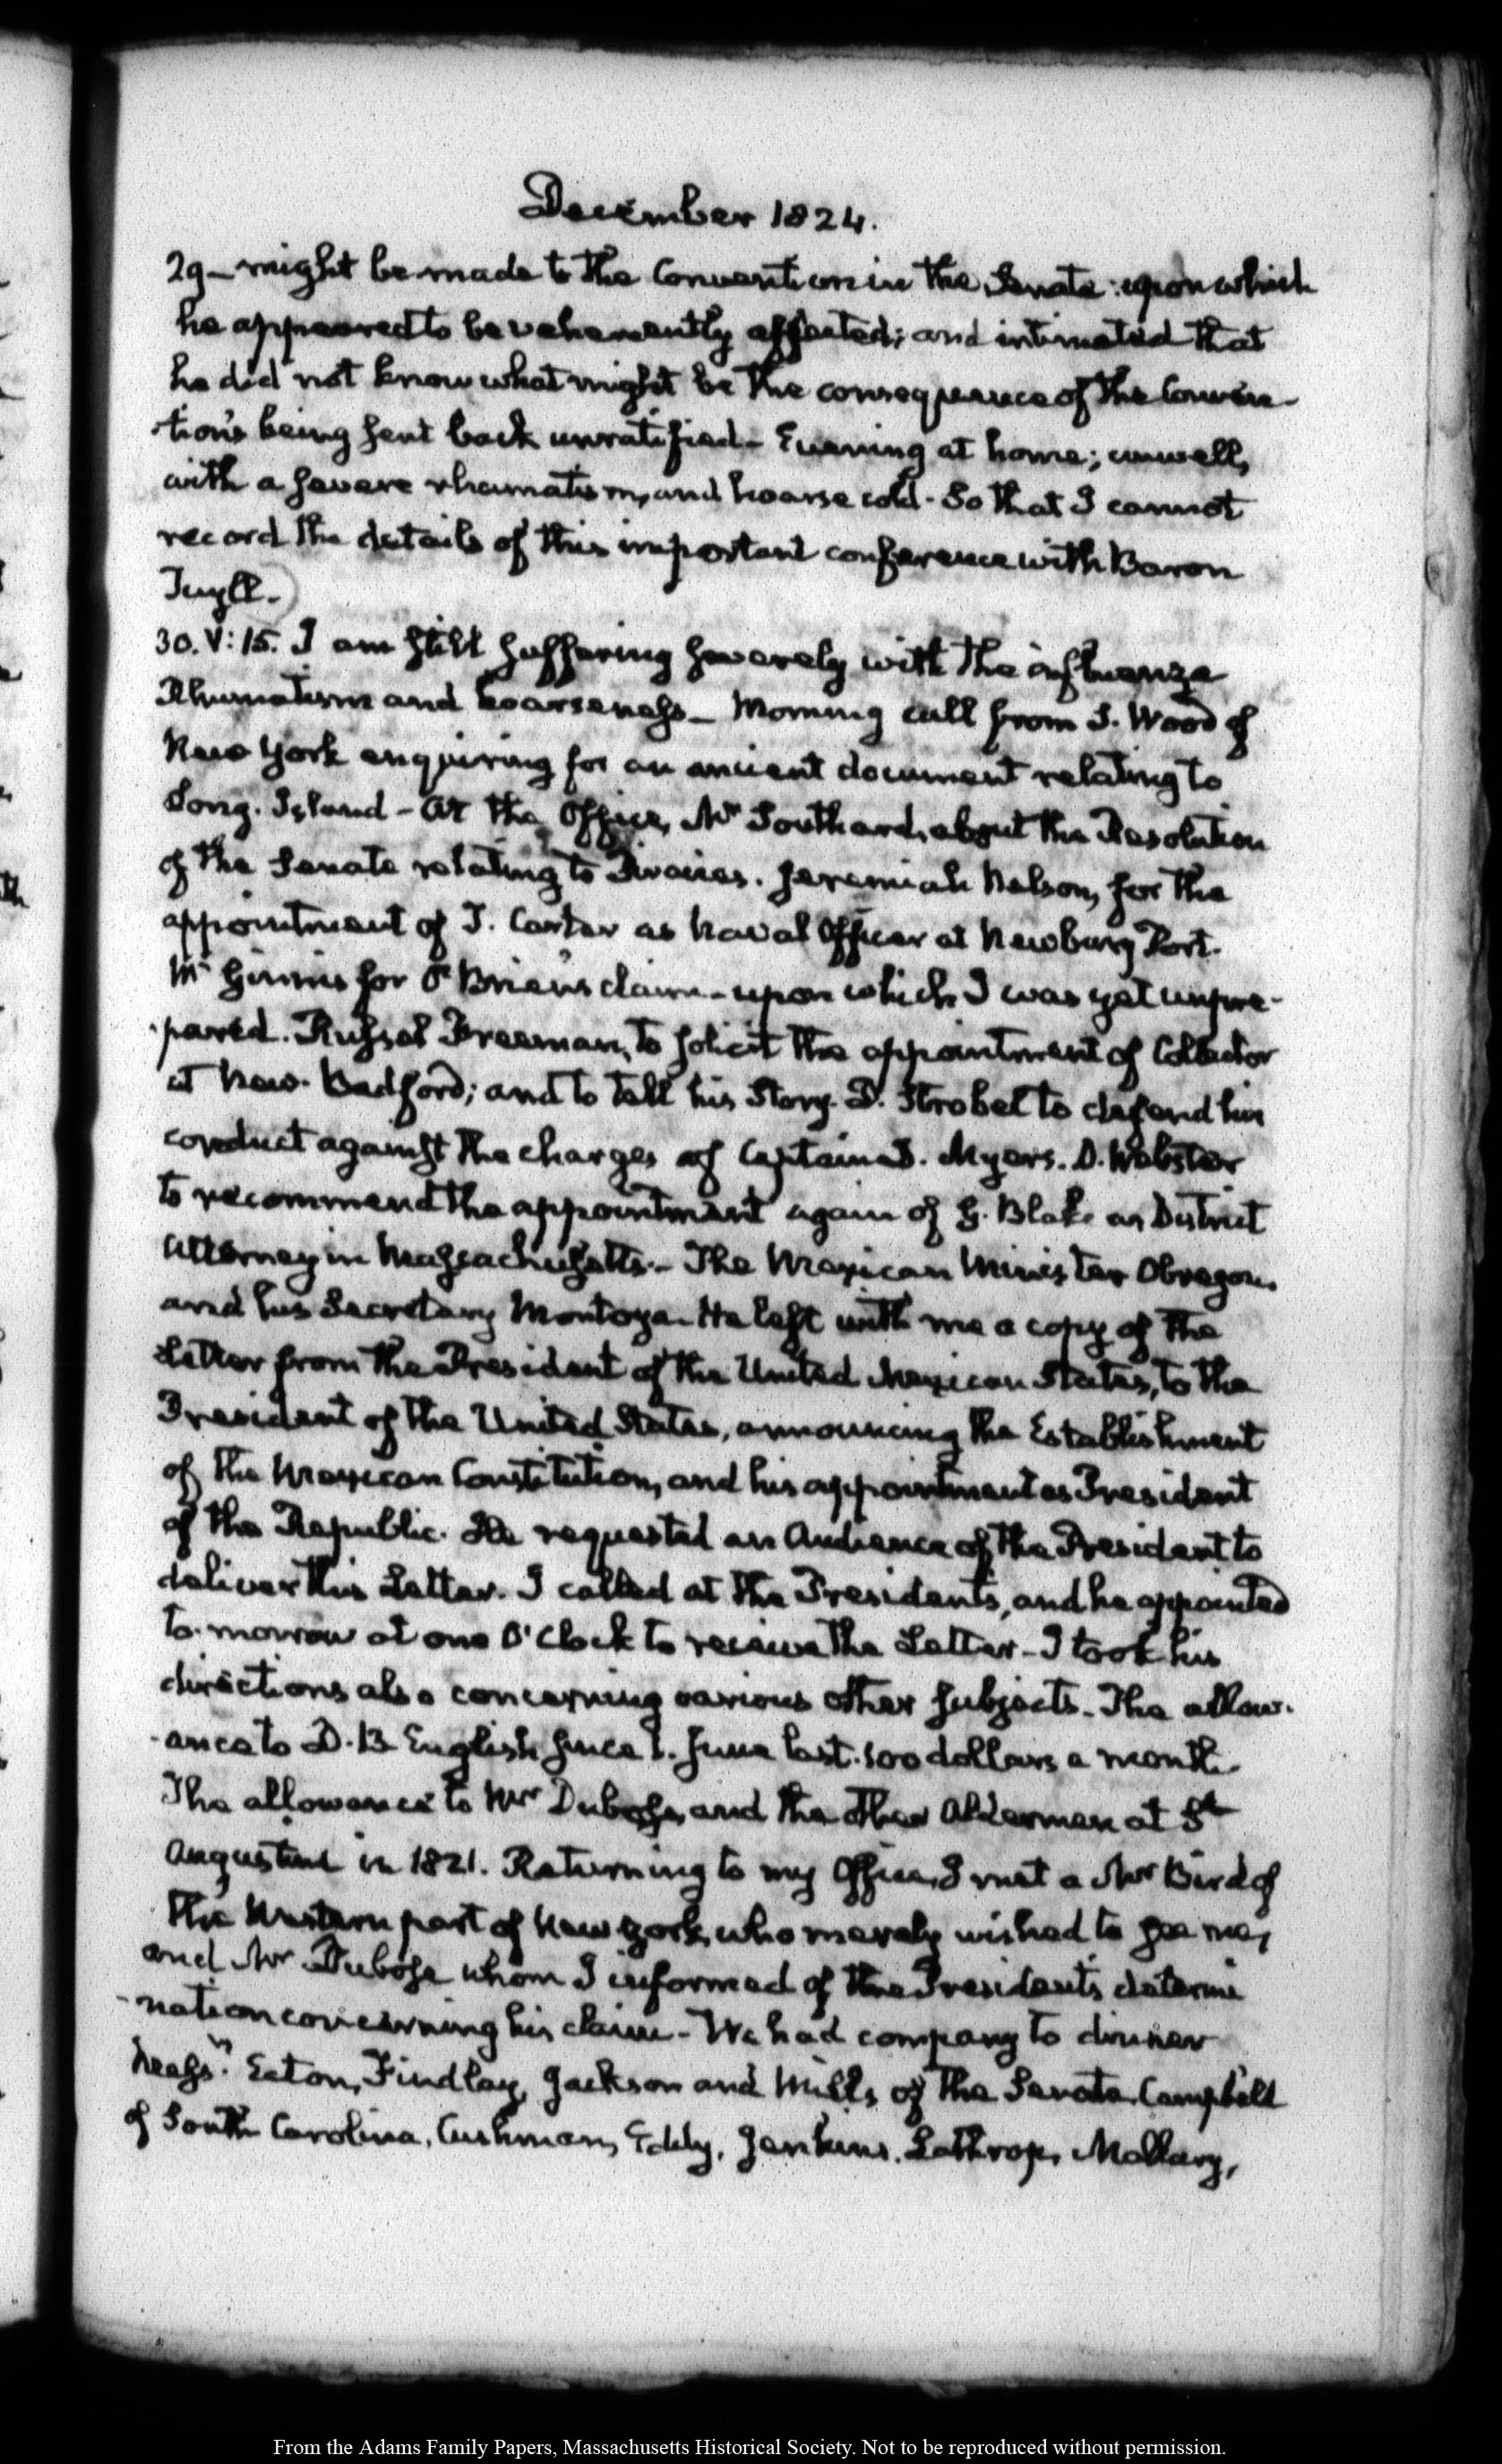 December 1824.
29— might be made to the Convention in the Senate: upon which
he appeared to be vehemently affected; and intimated that
he did not know what might be the consequence of the Conven-
-tion's being sent back unratified- Evening at home; unwell,
with a severe rheumatism, and hoarse cold- So that I cannot
record the details of this important conference with Baron
Tuyll.
30. V:15. I am still suffering severely with the influenza
Rhumatism and hoarseness— Morning call from S. Wood of
New York enquiring for an ancient document relating to
Long-Island- At the Office, Mr Southard, about the Resolution
of the Senate relating to Piracies. Jeremiah Nelson, for the
appointment of J. Carter as Naval Officer at Newbury Port.
Mr Ginnis for O'Brien's claim- upon which I was yet unpre-
-pared. Russel Freeman, to solicit the appointment of Collector
at New-Bedford; and to tell his Story. D. Strobel to defend his
conduct against the charges of Captain Myers. D. Webster
to recommend the appointment again of G. Blake as District
Attorney in Massachusetts.- The Mexican Minister Obregon,
and his Secretary Montoya- He left with me a copy of the
Letter from the President of the United Mexican States, to the
President of the United States, announcing the Establishment
of the Mexican Constitution, and his appointment as President
of the Republic. He requested an Audience of the President to
deliver this Letter. I called at the Presidents, and he appointed
to-morrow at one O'Clock to receive the Letter- I took his
directions also concerning various other subjects- The allow-
-ance to D. B English since 1. June last. 100 dollars a month-
The allowance to Mr Dubose, and the other Aldermen at St
Augustine in 1821. Returning to my Office, I met a Mr Bird of
the Western part of New York, who merely wished to see me,
and Mr Dubose whom I informed of the President's determi
-nation concerning his claim- We had company to dinner
Messrs. Eaton, Findlay, Jackson and Mills of the Senate. Campbell
of South Carolina, Cushman, Eddy, Jenkins, Lathrop, Mallary,
From the Adams Family Papers, Massachusetts Historical Society. Not to be reproduced without permission.